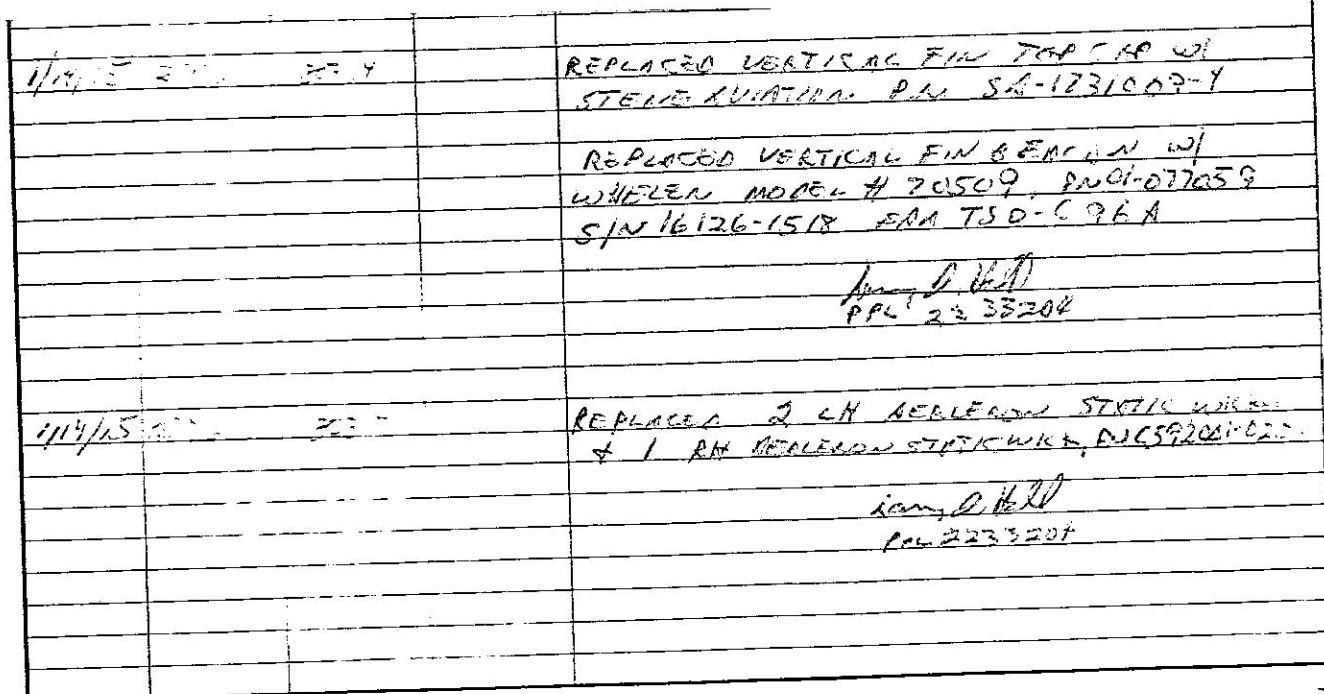 REPLACED VERTICAL FIN TOP CAP W/
STENE AVIATION P/N SA-1231009-4
REPLACED VERTICAL FIN BEACON W/
WHELEN MODEL # 70509, PN 01-077059
S/N 16126-1518 FAA TSO-C96A
PPL 2233204
1/14/15
REPLACED 2 LH AERLERON STATIC
& 1 RH AERLERON STATIC WICK, PN
PPL 2233204